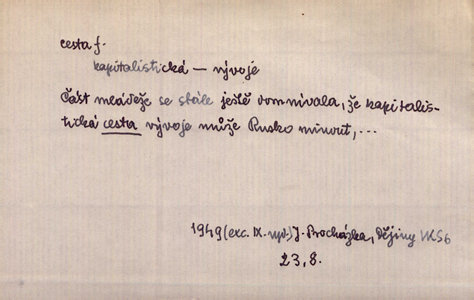 cesta f.
kapitalistická — vývoje
Část mládeže se stále ještě domnívala, že kapitalis-
tická cesta vývoje může Rusko minout, ...
1949 (exc. IX. vyd.) J. Procházka, Dějiny VKSb
23, 8.